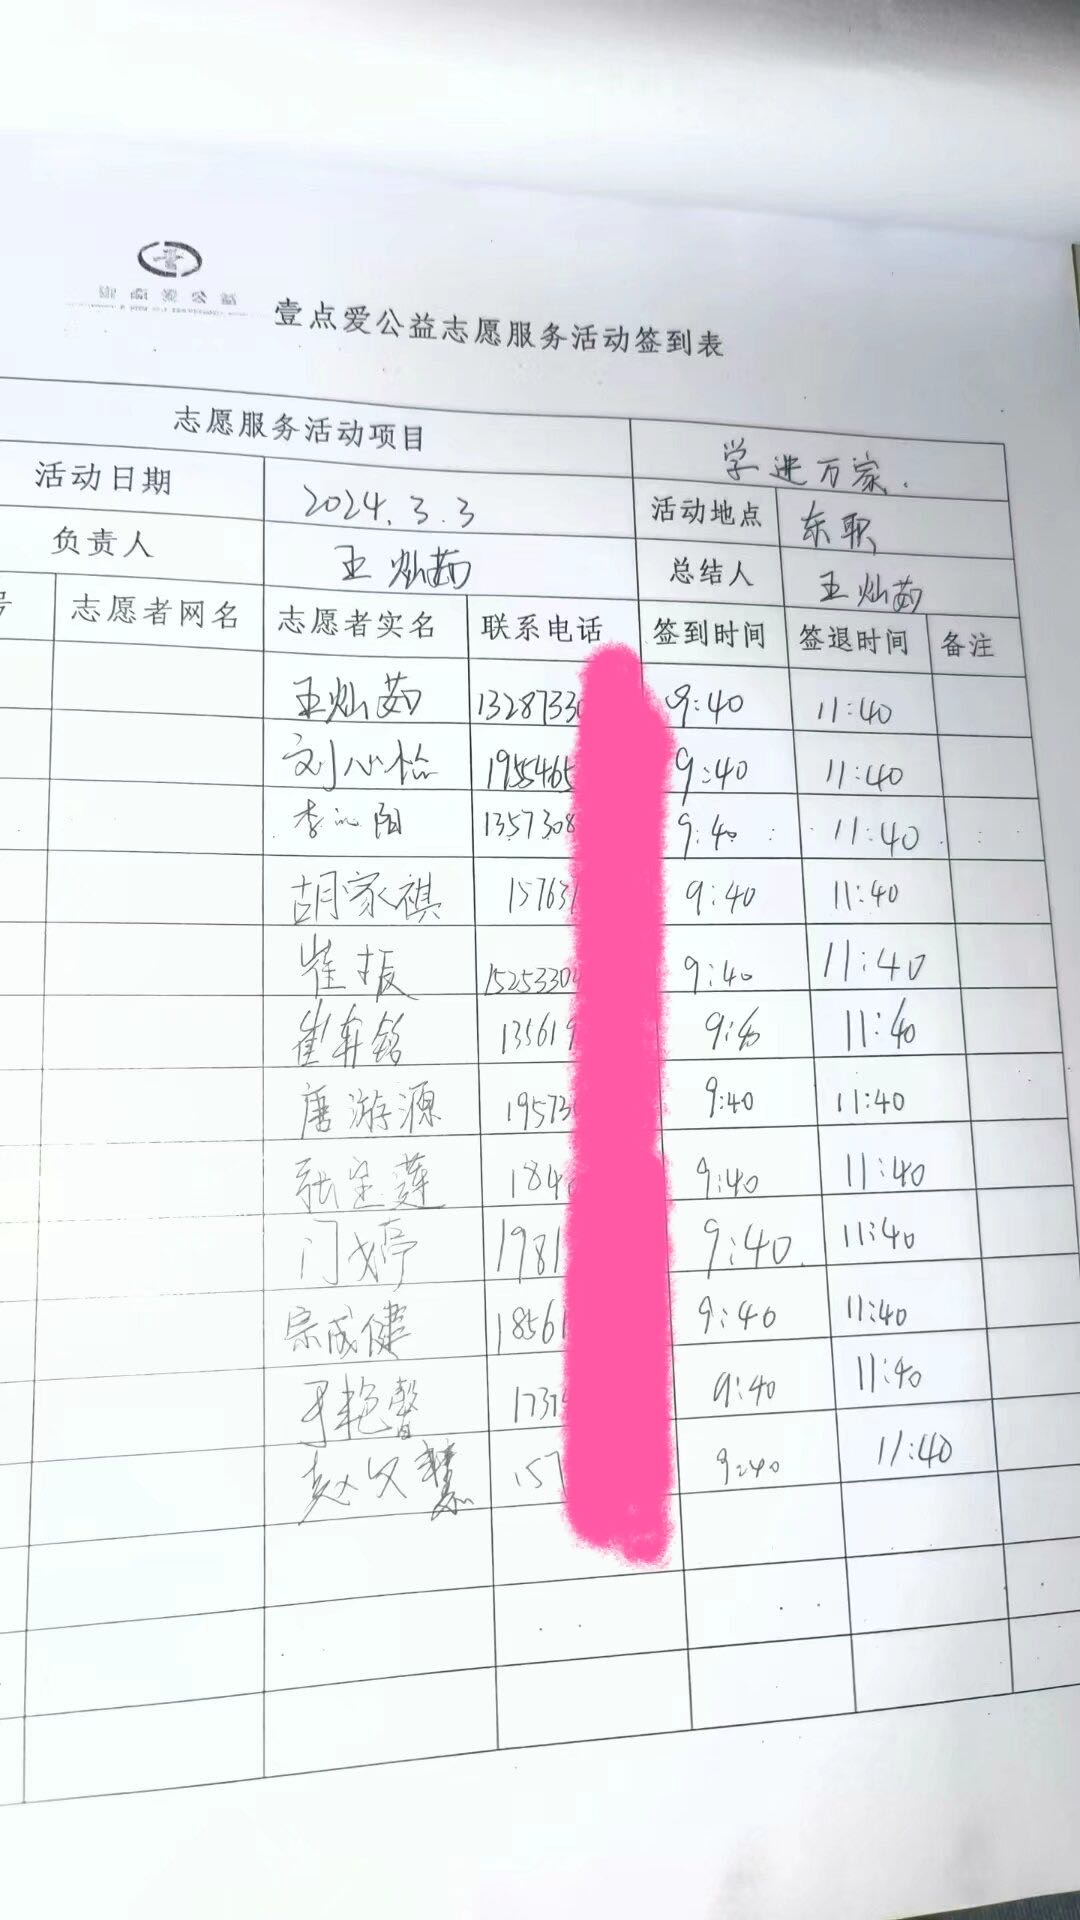 壹点爱公益志愿服务活动签到表
志愿服务活动项目 学进万家.
活动日期 2024.3.3 活动地点 东职
负责人 王灿茹 总结人 王灿茹
号 志愿者网名 志愿者实名 联系电话 签到时间 签退时间 备注
王灿茹 1328733 9:40 11:40
刘心怡 1955465 9:40 11:40
李沁阳 1357308 9:40 11:40
胡家祺 15763 9:40 11:40
崔振 1525330 9:40 11:40
崔弈铭 135619 9:40 11:40
唐游源 19573 9:40 11:40
张宝莲 184 9:40 11:40
门婷 1981 9:40. 11:40
宗成健 18561 9:40 11:40
艳馨 1737 9:40 11:40
赵文慧 157 9:40 11:40